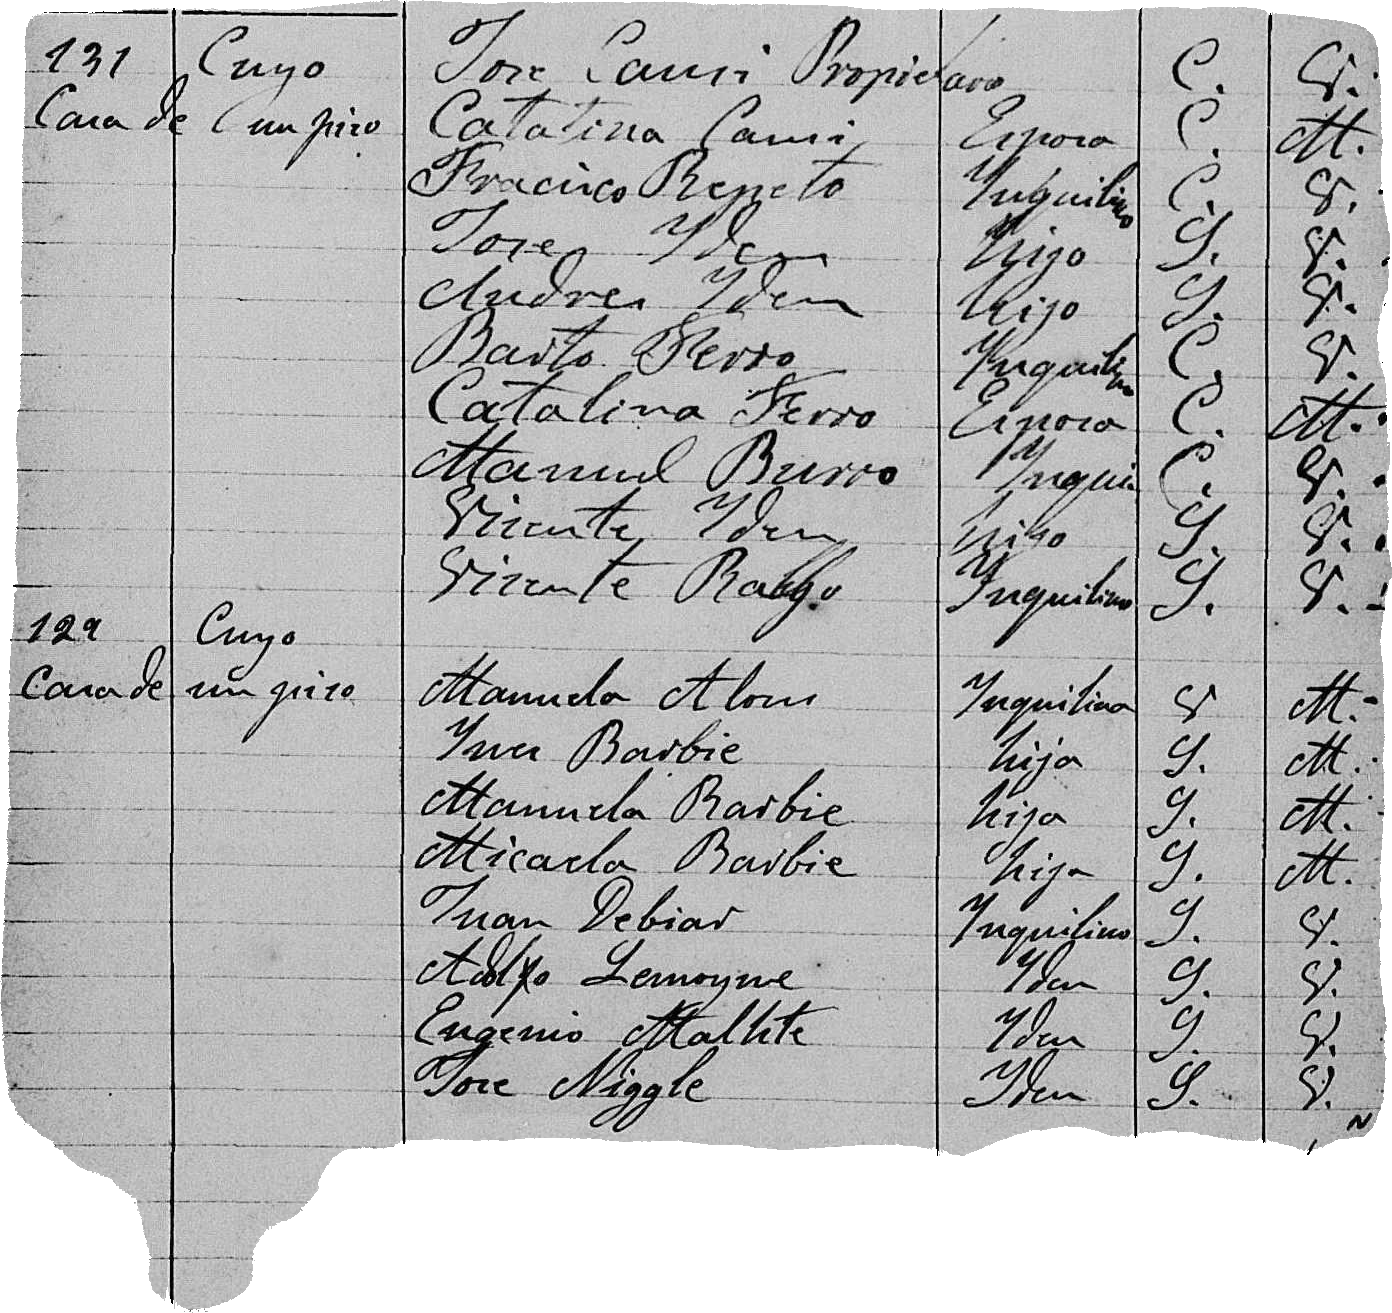 131 Cuyo Jose Cansi Propietario C. V.
Casa de un piso Catalina Cansi Esposa C. M.
Fracisco Repeto Inquilino C. V.
Jose Ydem hijo S. V.
Andres Ydem hijo S. V.
Barto Ferro Ynquilino C. V.
Catalina Ferro Esposa C. M.
Manuel Burro Ynqui C. V.
Vicente Ydem hijo S. V.
Vicente Ynquilino S. V.
129 Cuyo
Casa de un piso Manuela Alons Ynquilina V M.
Ynes Barbie hija S. M.
Manuela Barbie hija S. M.
Micaela Barbie hija S. M.
Juan Debiar Ynquilino S. V.
Adolfo Lemoyne Ydem S. V.
Eugenio Ydem S. V.
Jose Niggle Ydem S. V.